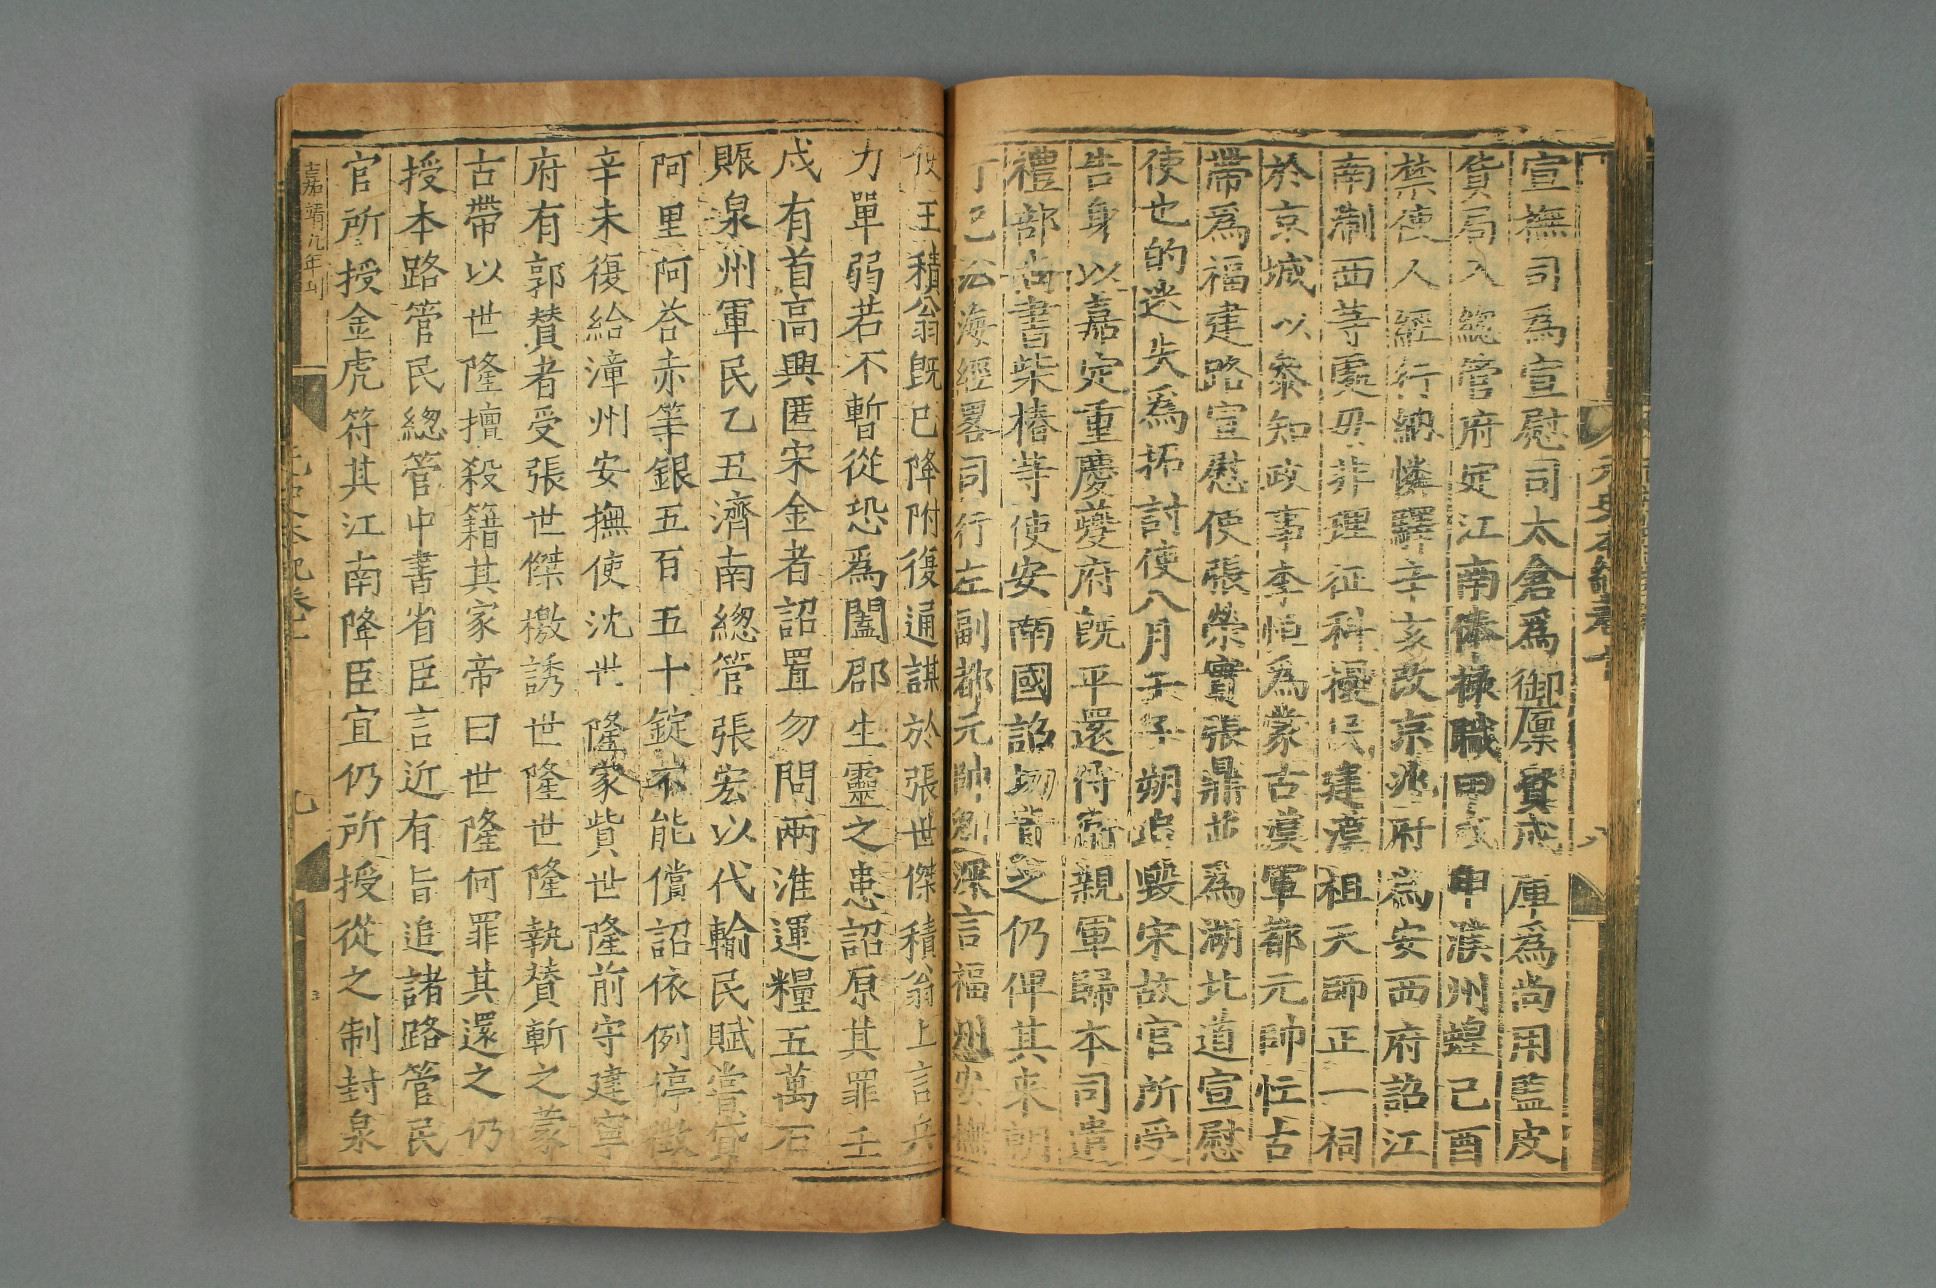 宣撫司為宣慰司太倉為御廩資成庫為尚用監皮
貨局入總管府定江南俸祿職田戊申濮州蝗己酉
禁使人經行納憐驛辛亥改京兆府為安西府詔江
南制西等處毋非理征科擾民建漢祖天師正一祠
於京城以叅知政事李恒為蒙古漢軍都元帥忙古
帶為福建路宣慰使張榮實張鼎並為湖北道宣慰
使也的迷失為招討使八月壬子朔追毀宋故官所受
告身以嘉定重慶夔府既平還侍衛親軍歸本司遣
禮部尚書柴椿等使安南國詔切責之仍俾其來朝
丁巳沿海經畧司行左副都元帥劉深言福州安撫
使王積翁既已降附復通謀於張世傑積翁上言兵
力單弱若不暫從恐為闔郡生靈之患詔原其罪壬
戌有首高興匿宋金者詔置勿問兩淮運糧五萬石
賑泉州軍民乙丑濟南總管張宏以代輸民賦嘗貸
阿里阿荅赤等銀五百五十錠不能償詔依例停徵
辛未復給漳州安撫使沈世隆家貲世隆前守建寧
府有郭贊者受張世傑檄誘世隆世隆執贊斬之蒙
古帶以世隆擅殺籍其家帝曰世隆何罪其還之仍
授本路管民總管中書省臣言近有旨追諸路管民
官所授金虎符其江南降臣宜仍所授從之制封泉
嘉靖九年刊
元史本紀卷十
九